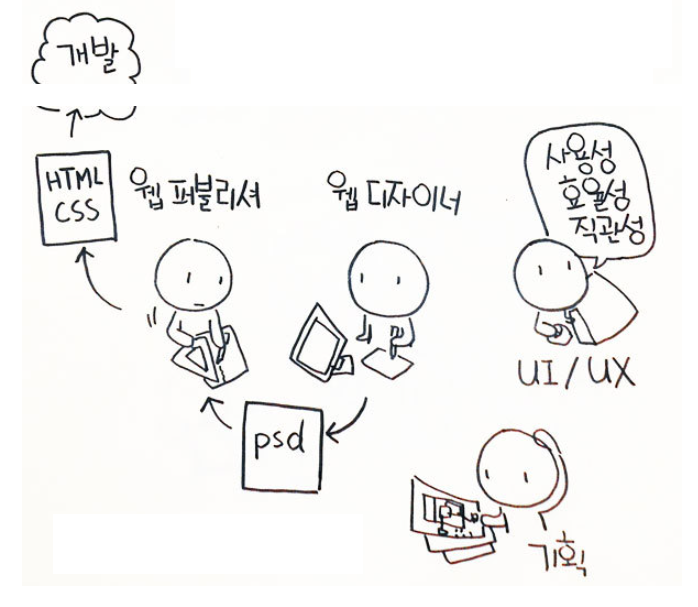 개발
HTML
CSS
웹 퍼블리셔
웹 디자이너
사용성
효율성
직관성
UI/UX
psd
기획